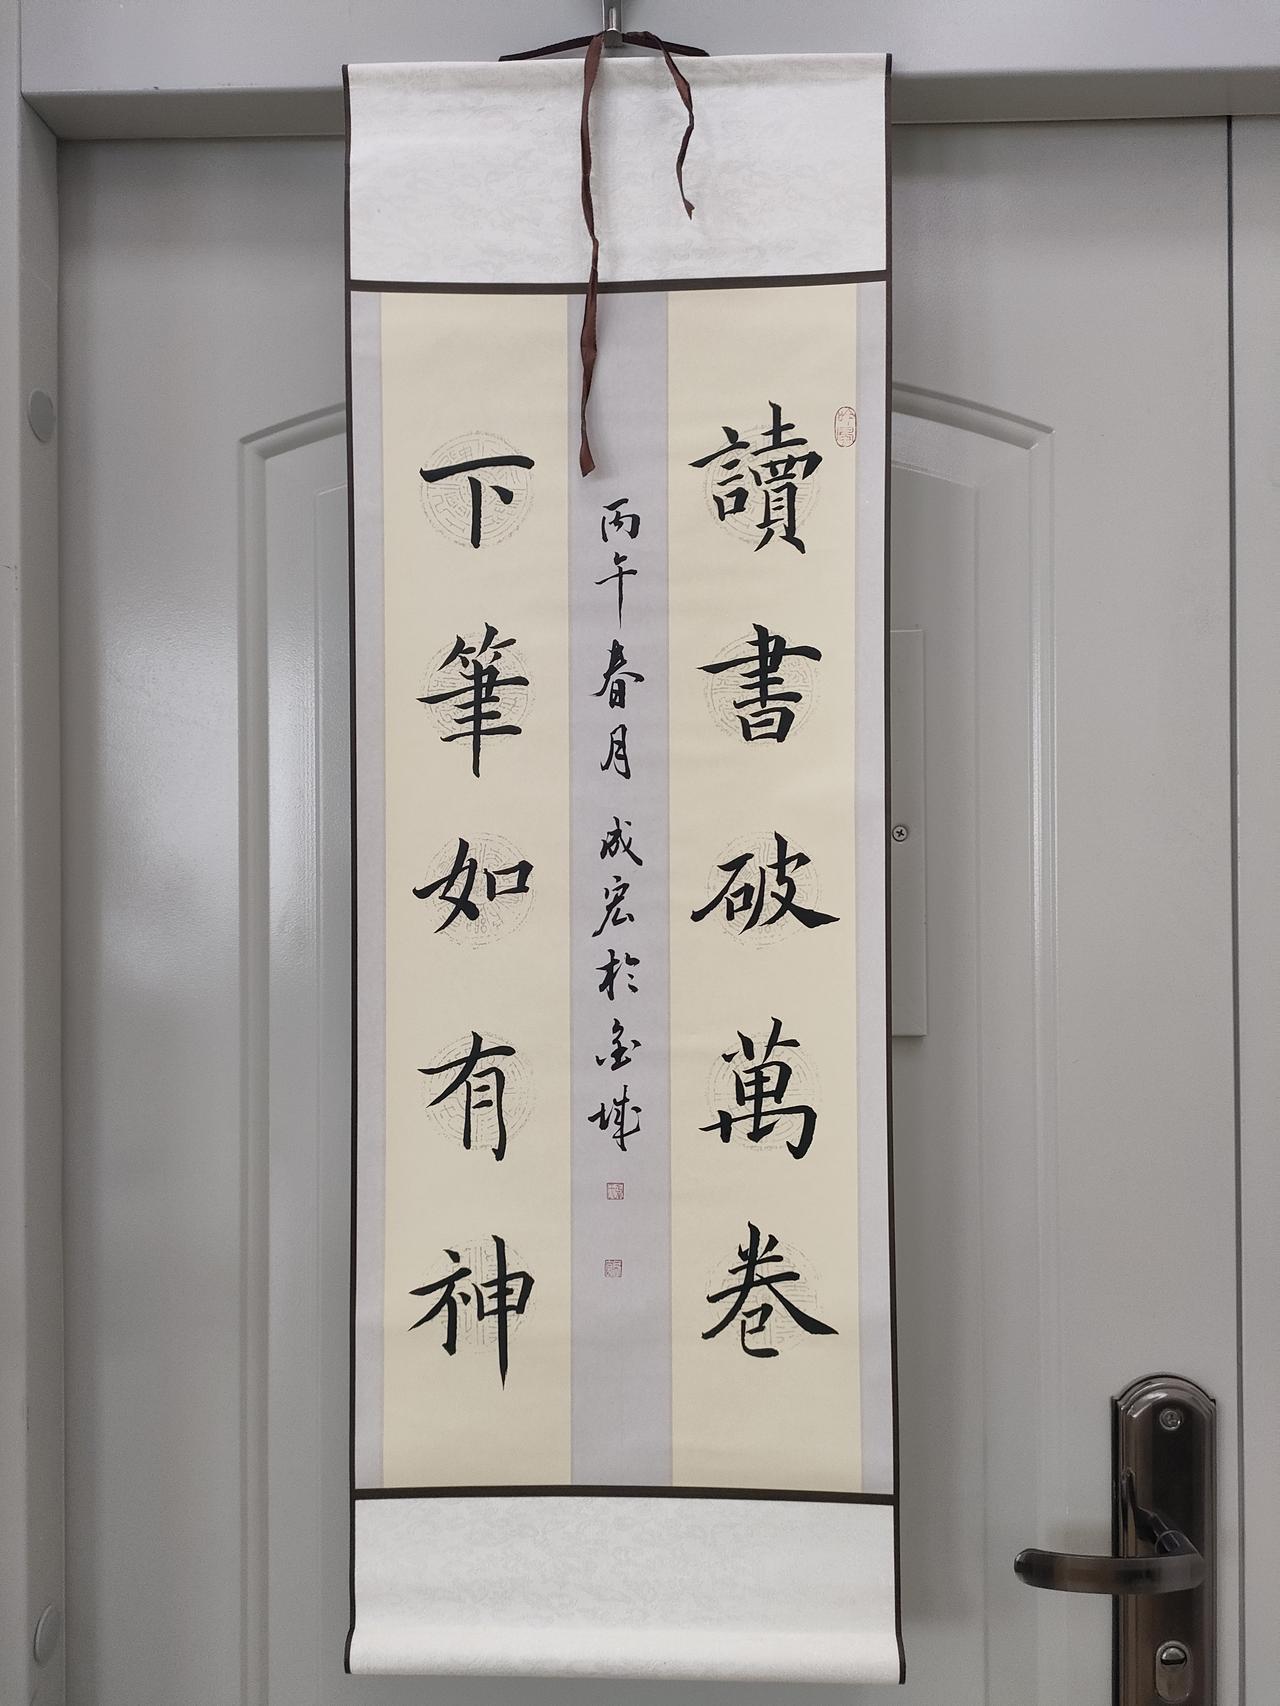 讀書破萬卷
丙午春月成宏於金城
下筆如有神